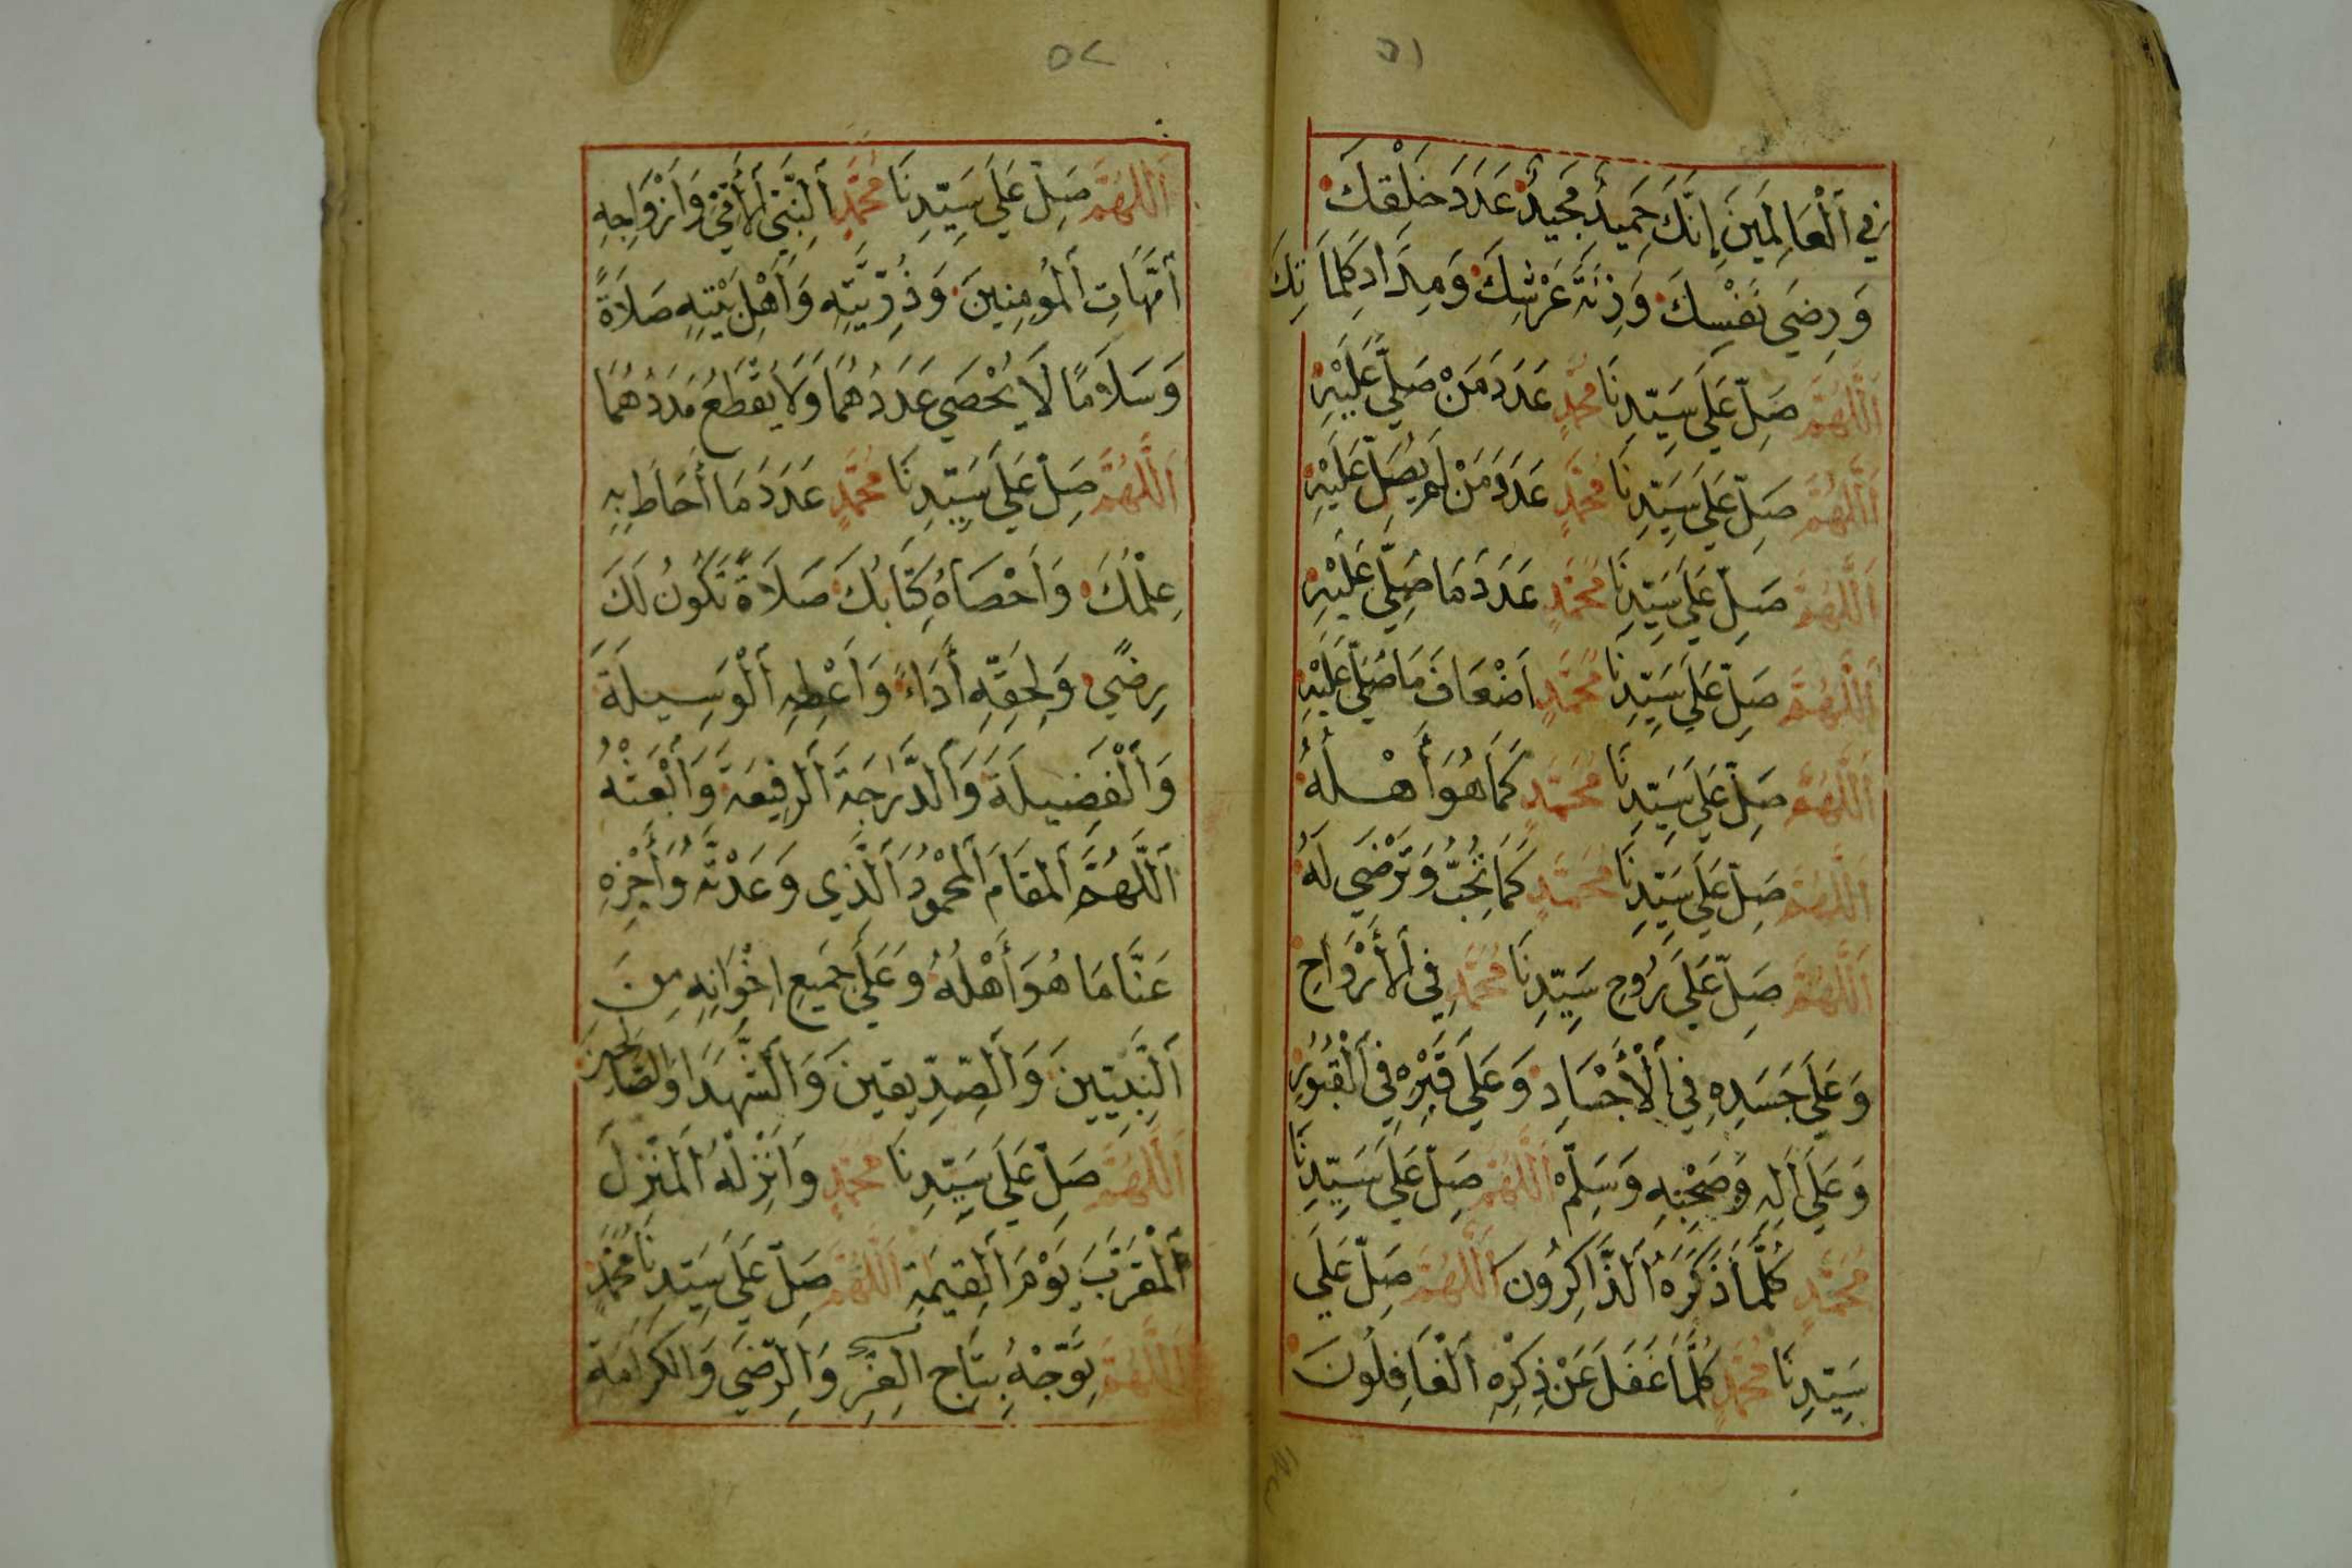 ٥١
فِي اَلْعَالَمِينَ إِنَّكَ حَمِيدٌ مَجِيدٌ عَدَدَ خَلْقِكَ
وَرِضَى نَفْسِكَ وَزِنَةَ عَرْشِكَ وَمِدَادَ كَلِمَاتِكَ
اَللَّهُمَّ صَلِّ عَلَى سَيِّدِنَا مُحَمَّدٍ عَدَدَ مَنْ صَلَّى عَلَيْهِ
اَللَّهُمَّ صَلِّ عَلَى سَيِّدِنَا مُحَمَّدٍ عَدَدَ مَنْ لَمْ يُصَلِّ عَلَيْهِ
اَللَّهُمَّ صَلِّ عَلَى سَيِّدِنَا مُحَمَّدٍ عَدَدَ مَا صُلِّيَ عَلَيْهِ
اَللَّهُمَّ صَلِّ عَلَى سَيِّدِنَا مُحَمَّدٍ اَضْعَافَ مَا صُلِّيَ عَلَيْهِ
اَللَّهُمَّ صَلِّ عَلَى سَيِّدِنَا مُحَمَّدٍ كَمَا هُوَ أَهْلُهُ
اَللَّهُمَّ صَلِّ عَلَى سَيِّدِنَا مُحَمَّدٍ كَمَا تُحِبُّ وَتَرْضَى لَهُ
اَللَّهُمَّ صَلِّ عَلَى رُوحِ سَيِّدِنَا مُحَمَّدٍ فِي اَلأَرْوَاحِ
وَعَلَى جَسَدِهِ فِي اَلْأَجْسَادِ وَعَلَى قَبْرِهِ فِي اَلْقُبُورِ
وَعَلَى اَلِهِ وَصَحْبِهِ وَسَلِّمْ اَللَّهُمَّ صَلِّ عَلَى سَيِّدِنَا
مُحَمَّدٍ كُلَّمَا ذَكَرَهُ اَلذَّاكِرُونَ اَللَّهُمَّ صَلِّ عَلَى
سَيِّدِنَا مُحَمَّدٍ كُلَّمَا غَفَلَ عَنْ ذِكْرِهِ اَلْغَافِلُونَ
٥٢
اَللَّهُمَّ صَلِّ عَلَى سَيِّدِنَا مُحَمَّدٍ اَلنَّبِيِّ اَلأُمِّيِّ وَاَزْوَاجِهِ
أُمَّهَاتِ اَلْمُومِنِينَ وَذُرِّيَّتِهِ وَاَهْلِ بَيْتِهِ صَلاَةً
وَسَلاَمًا لاَ يُحْصَى عَدَدُهُمَا وَلاَ يُقْطَعُ مَدَدُهُمَا
اَللَّهُمَّ صَلِّ عَلَى سَيِّدِنَا مُحَمَّدٍ عَدَدَ مَا أَحَاطَ بِهِ
عِلْمُكَ وَاَحْصَاهُ كِتَابُكَ صَلاَةً تَكُونُ لَكَ
رِضًى وَلِحَقِّهِ أَدَاءً وَاَعْطِهِ اَلْوَسِيلَةَ
وَاَلْفَضِيلَةَ وَاَلدَّرَجَةَ اَلرَفِيعَةَ وَاَبْعَثْهُ
اَللَّهُمَّ اَلْمَقَامَ اَلْمَحْمُودَ اَلَّذِي وَعَدْتَهُ وَأَجْزِهِ
عَنَّا مَا هُوَ أَهْلُهُ وَعَلَى جَمِيعِ اخْوَانِهِ مِنَ
اَلنَّبِيِّينَ وَاَلصِّدِّيقِينَ وَاَلشُّهَدَا وَالصَّالِحِينَ
اَللَّهُمَّ صَلِّ عَلَى سَيِّدِنَا مُحَمَّدٍ وَاَنْزِلْهُ اَلْمَنْزِلَ
اَلْمُقَرَّبَ يَوْمَ اَلْقِيمَةِ اَللَّهُمَّ صَلِّ عَلَى سَيِّدِنَا مُحَمَّدٍ
اَللَّهُمَّ تَوِّجْهُ بِتَاجِ الْعِزِّ وَالرِّضَى وَالكَرَامَةِ